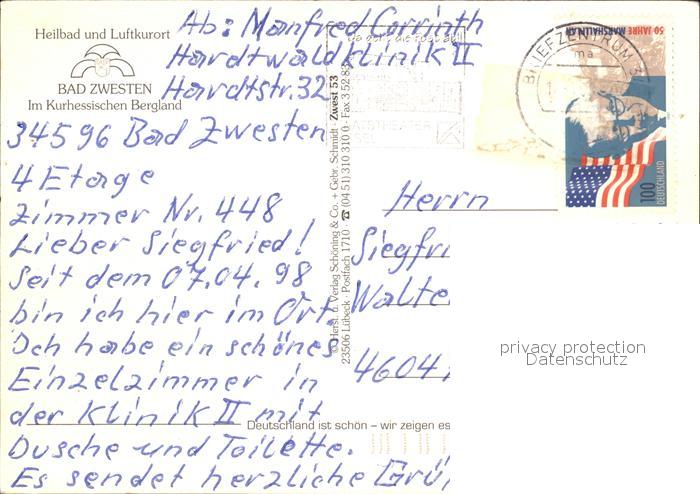 Heilbad und Luftkurort
BAD ZWESTEN
Im Kurhessischen Bergland
Ab: Manfred Corrinth
Hardtwaldklinik II
Hardtstr. 32
34596 Bad Zwesten
4 Etage
Zimmer Nr. 448
Lieber Siegfried!
Seit dem 07.04.98
bin ich hier im Ort.
Ich habe ein schönes
Einzelzimmer in
der Klinik II mit
Dusche und Toilette.
Es sendet herzliche Grü
Deutschland ist schön – wir zeigen es
© Herst. u. Verlag Schöning & Co. + Gebr. Schmidt · Zwest 53
23506 Lübeck · Postfach 1710 · ☎ (04 51) 310 310 0 · Fax 3 52 83
Herrn
Siegfri
Walte
4604
BRIEFZENTRUM 3
50 JAHRE MARSHALLPLAN
100
DEUTSCHLAND
privacy protection
Datenschutz